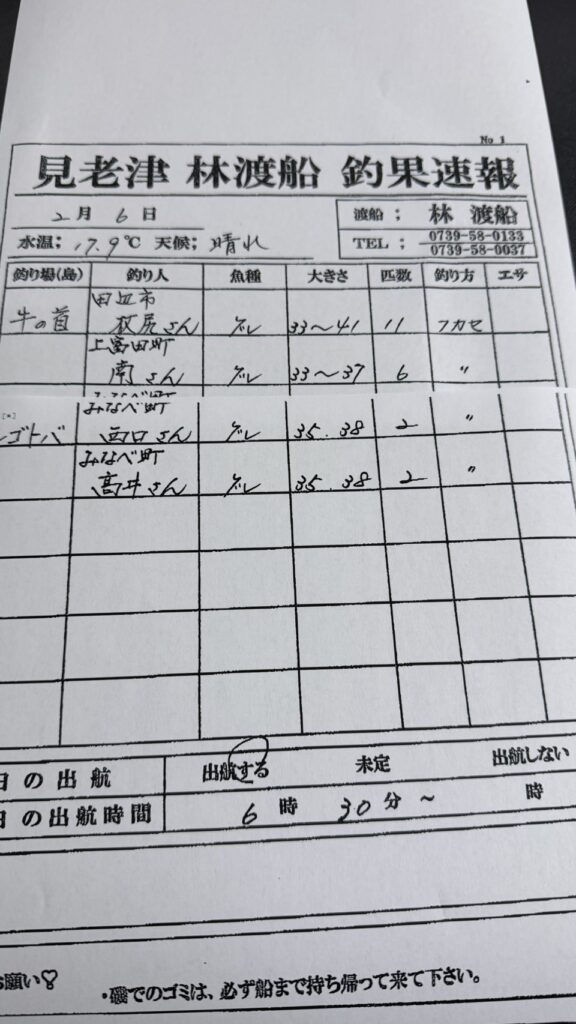 No 1
見老津 林渡船 釣果速報
2月 6日
渡船; 林 渡船
水温; 17.9℃ 天候; 晴れ
TEL; 0739-58-0133
0739-58-0037
釣り場(島) 釣り人 魚種 大きさ 匹数 釣り方 エサ
田辺市
牛の首 さん グレ 33〜41 11 フカセ
上富田町
南さん グレ 33〜37 6 〃
みなべ町
ゴトバ 西口さん グレ 35.38 2 〃
みなべ町
高井さん グレ 35.38 2 〃
日の出航 出航する 未定 出航しない
日の出航時間 6時 30分〜 時
お願い♡
・磯でのゴミは、必ず船まで持ち帰って来て下さい。